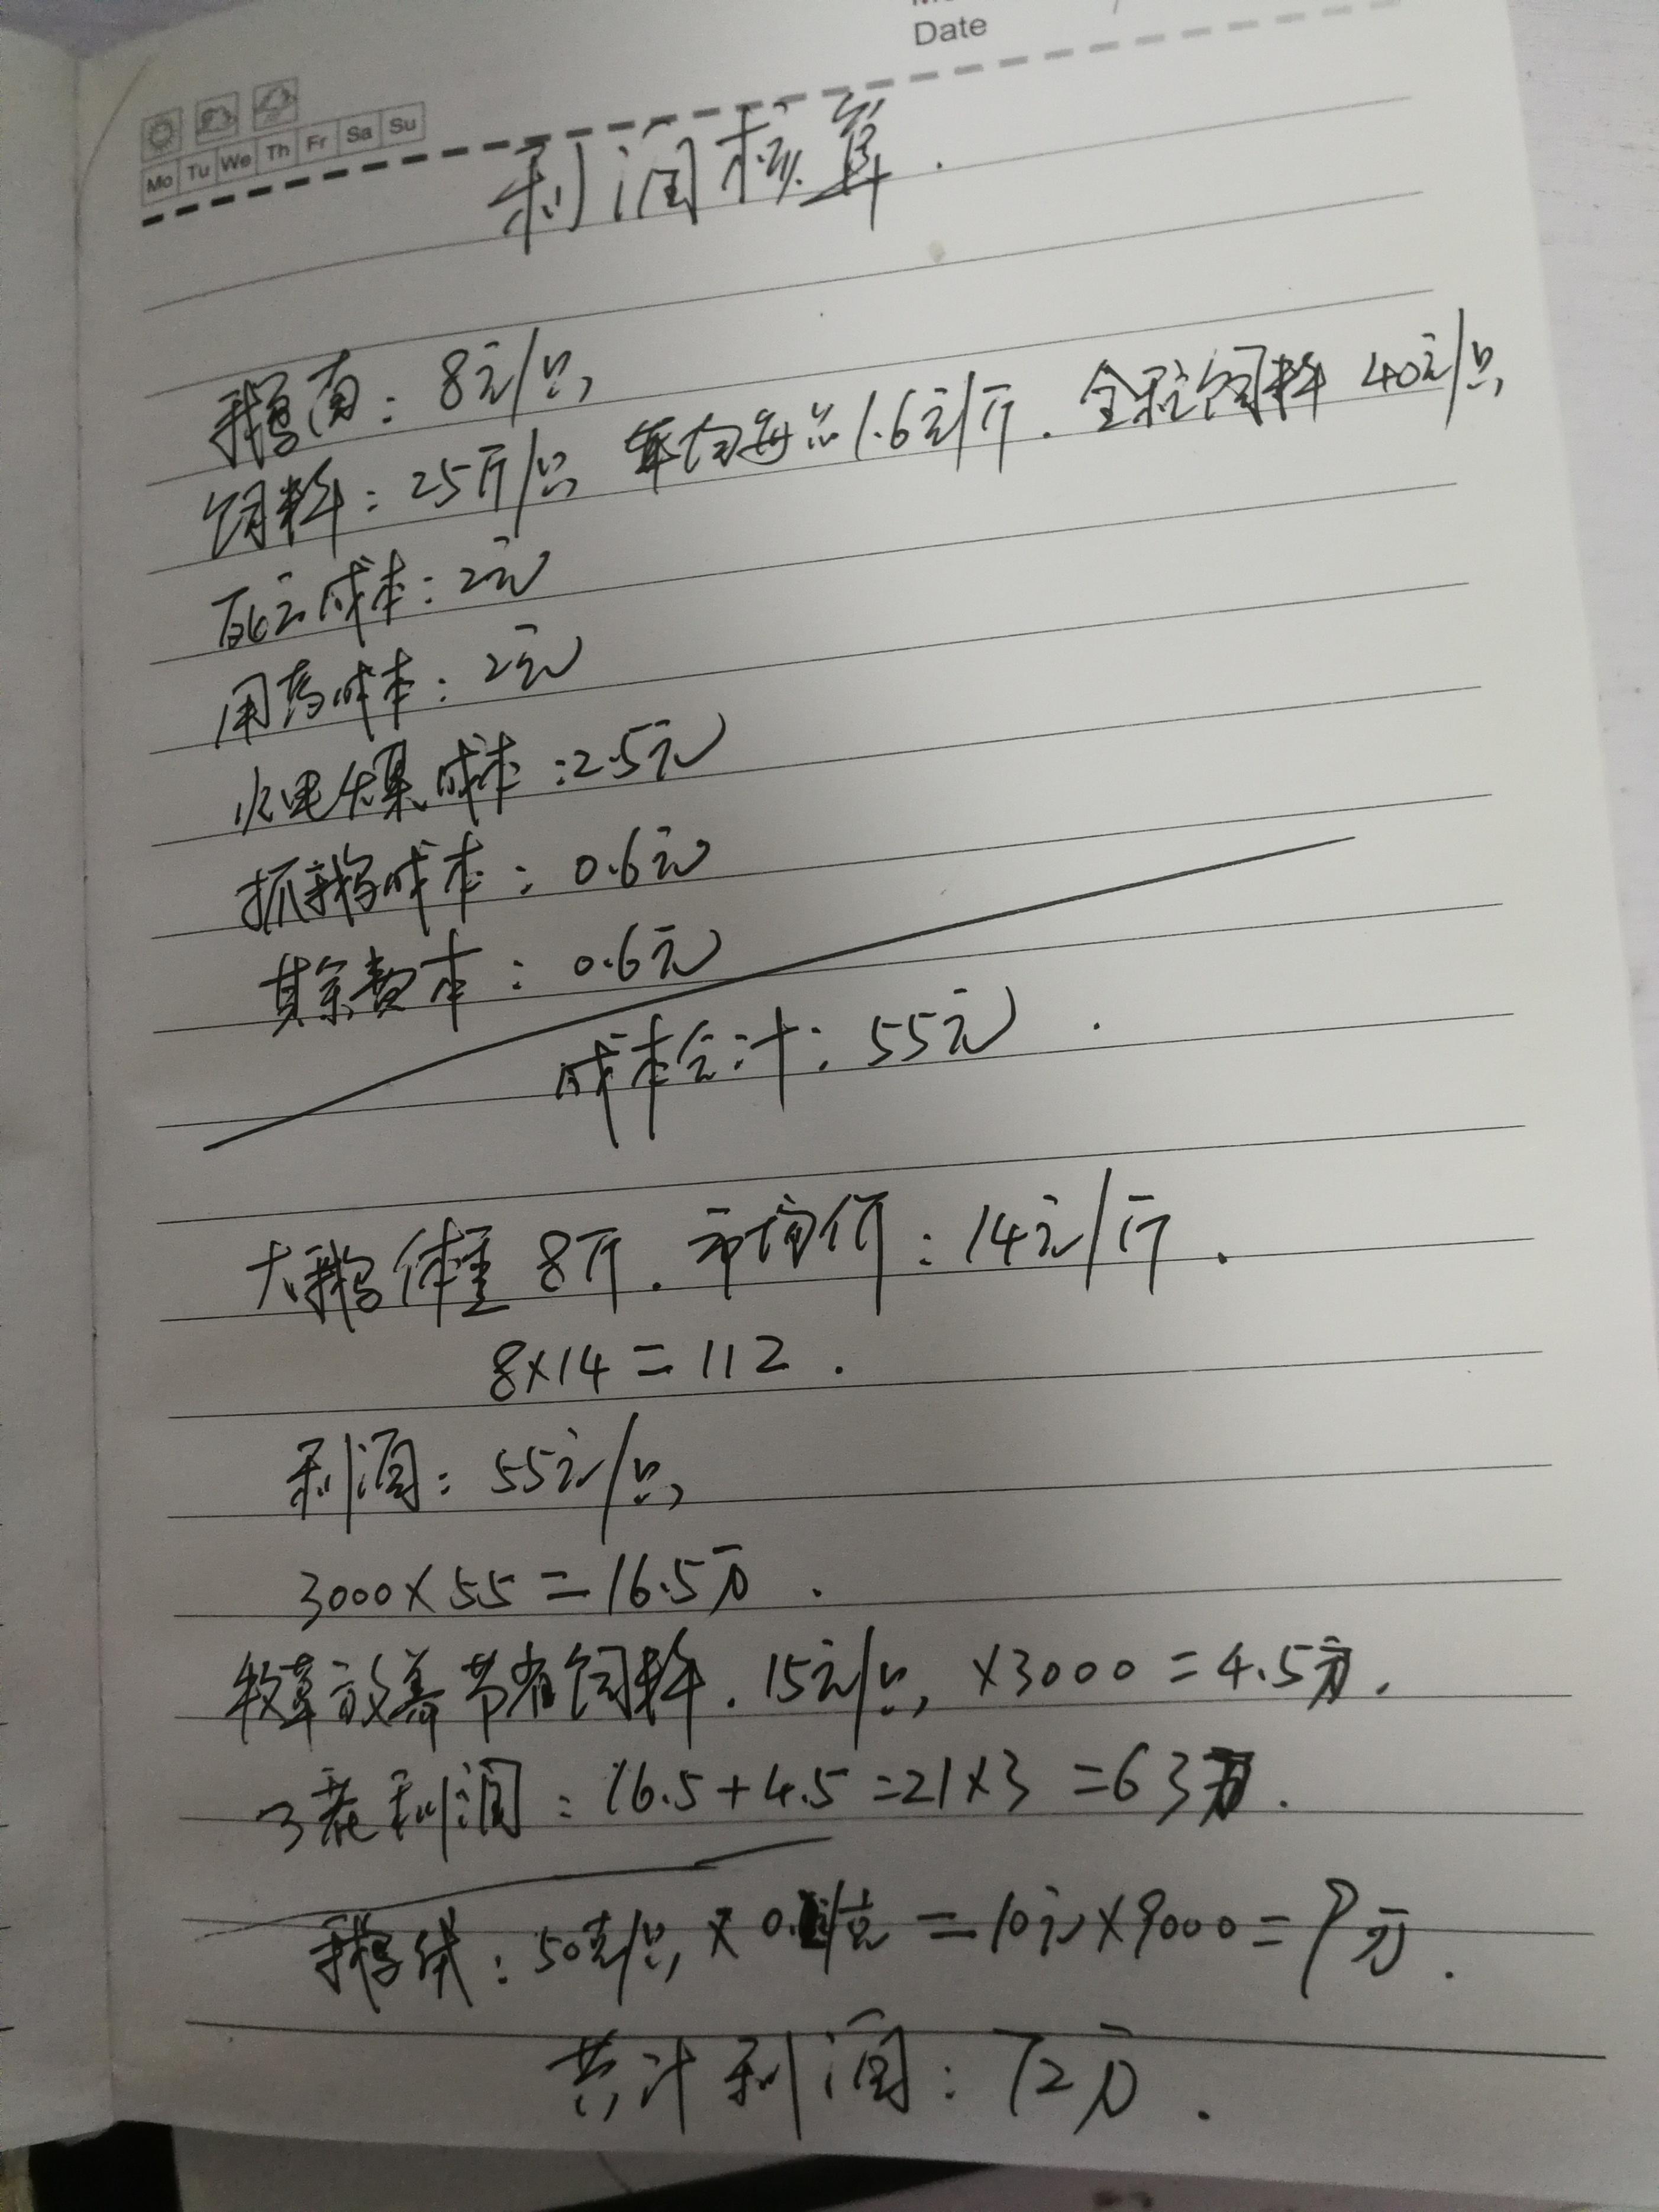 Date
Mo Tu We Th Fr Sa Su
利润核算.
鹅苗: 8元/只
饲料: 25斤/只 年均每 1.6元/斤. 全程饲料 40元/只
死亡成本: 2元
用药成本: 2元
水电煤成本: 2.5元
抓鹅成本: 0.6元
其余费本: 0.6元
成本合计: 55元.
大鹅体重 8斤. 市均价: 14元/斤.
8×14=112.
利润: 55元/只
3000×55=16.5万.
牧草放养节省饲料. 15元/只 ×3000=4.5万.
3茬利润: 16.5+4.5=21×3=63万.
鹅绒: 50克/只 × /克=10元×9000=9万.
共计利润: 72万.